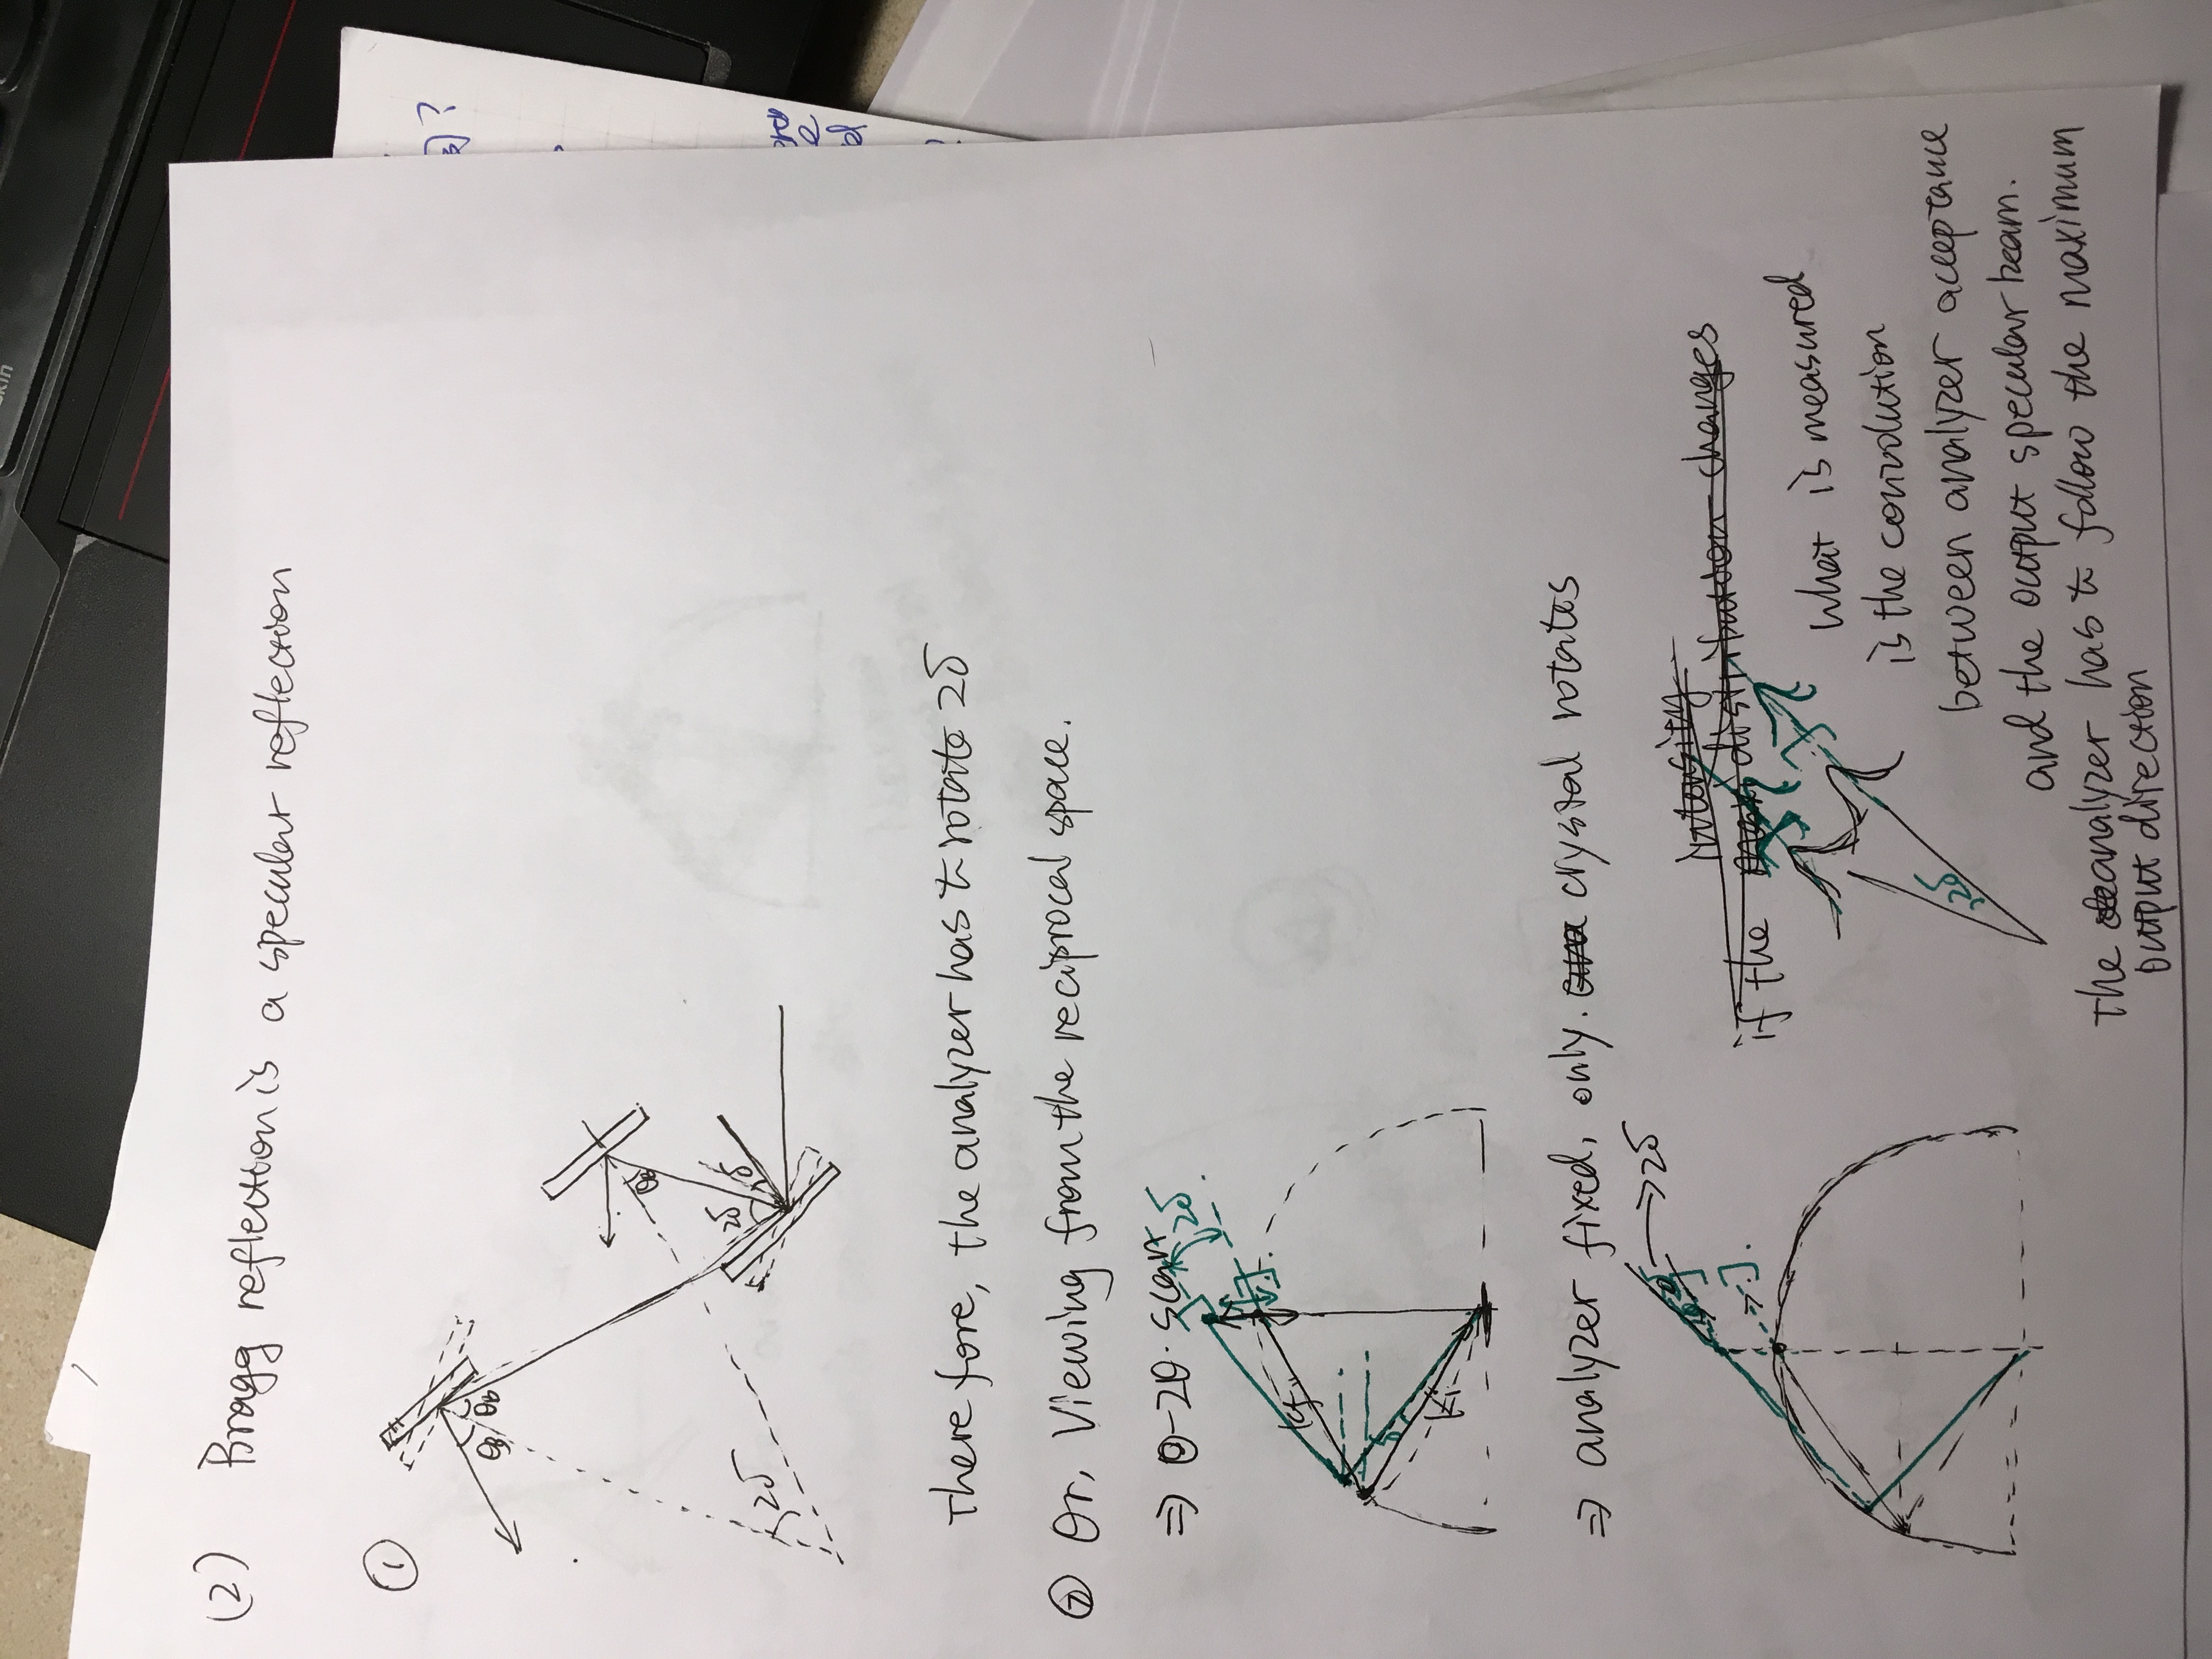 skin
(2) Bragg reflection is a specular reflection
①
θB θB
θB
2δ δ
2δ
Therefore, the analyzer has to rotate 2δ
② Or, Viewing from the reciprocal space.
⇒ θ-2θ. scan
2δ
kf
δ
ki
⇒ analyzer fixed, only. crystal rotates
2δ → 2δ
intensity
if the distribution changes
what is measured
is the convolution
2δ
between analyzer acceptance
and the output specular beam.
The analyzer has to follow the maximum
output direction